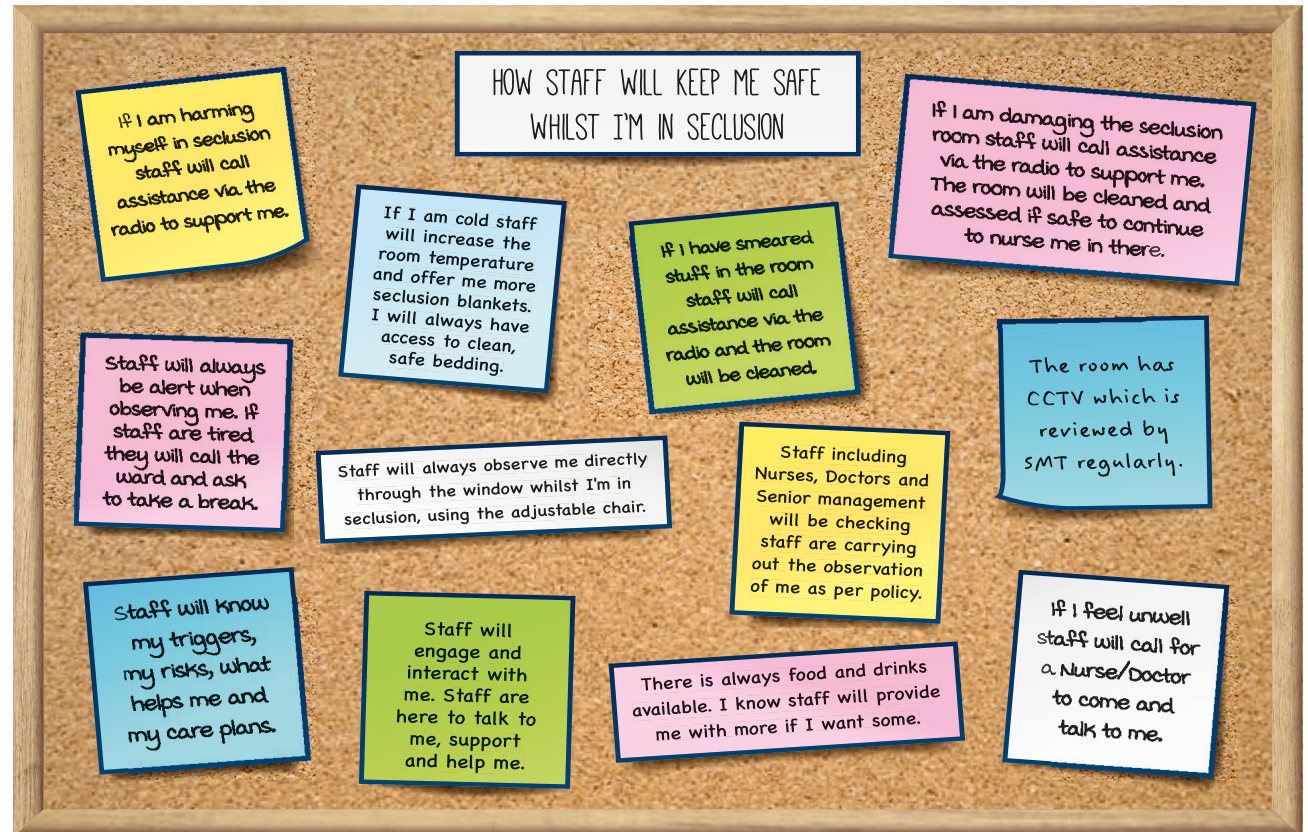 HOW STAFF WILL KEEP ME SAFE
WHILST I'M IN SECLUSION
If I am harming
myself in seclusion
staff will call
assistance via the
radio to support me.
If I am cold staff
will increase the
room temperature
and offer me more
seclusion blankets.
I will always have
access to clean,
safe bedding.
If I have smeared
stuff in the room
staff will call
assistance via the
radio and the room
will be cleaned.
If I am damaging the seclusion
room staff will call assistance
via the radio to support me.
The room will be cleaned and
assessed if safe to continue
to nurse me in there.
Staff will always
be alert when
observing me. If
staff are tired
they will call the
ward and ask
to take a break.
Staff will always observe me directly
through the window whilst I'm in
seclusion, using the adjustable chair.
Staff including
Nurses, Doctors and
Senior management
will be checking
staff are carrying
out the observation
of me as per policy.
The room has
CCTV which is
reviewed by
SMT regularly.
Staff will know
my triggers,
my risks, what
helps me and
my care plans.
Staff will
engage and
interact with
me. Staff are
here to talk to
me, support
and help me.
There is always food and drinks
available. I know staff will provide
me with more if I want some.
If I feel unwell
staff will call for
a Nurse/Doctor
to come and
talk to me.